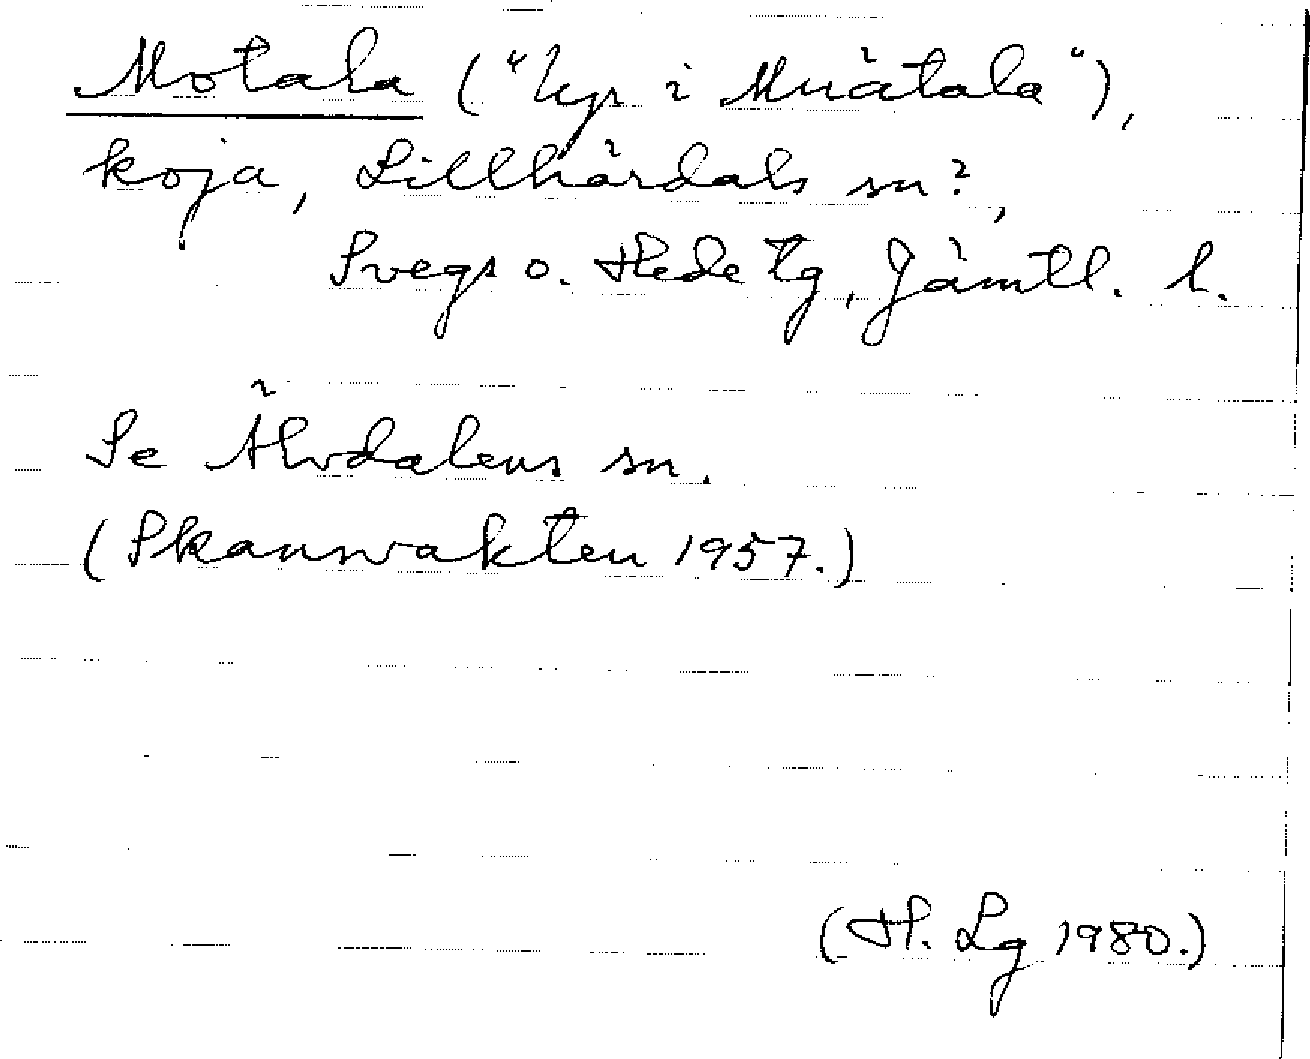 Motala ("Uppi Muätala"),
koja, Lillhärdals sn?,
Svegs o. Hede tg, Jämtl. l.
Se Älvdalens sn.
(Skansvakten 1957.)
(H. Lg 1980.)